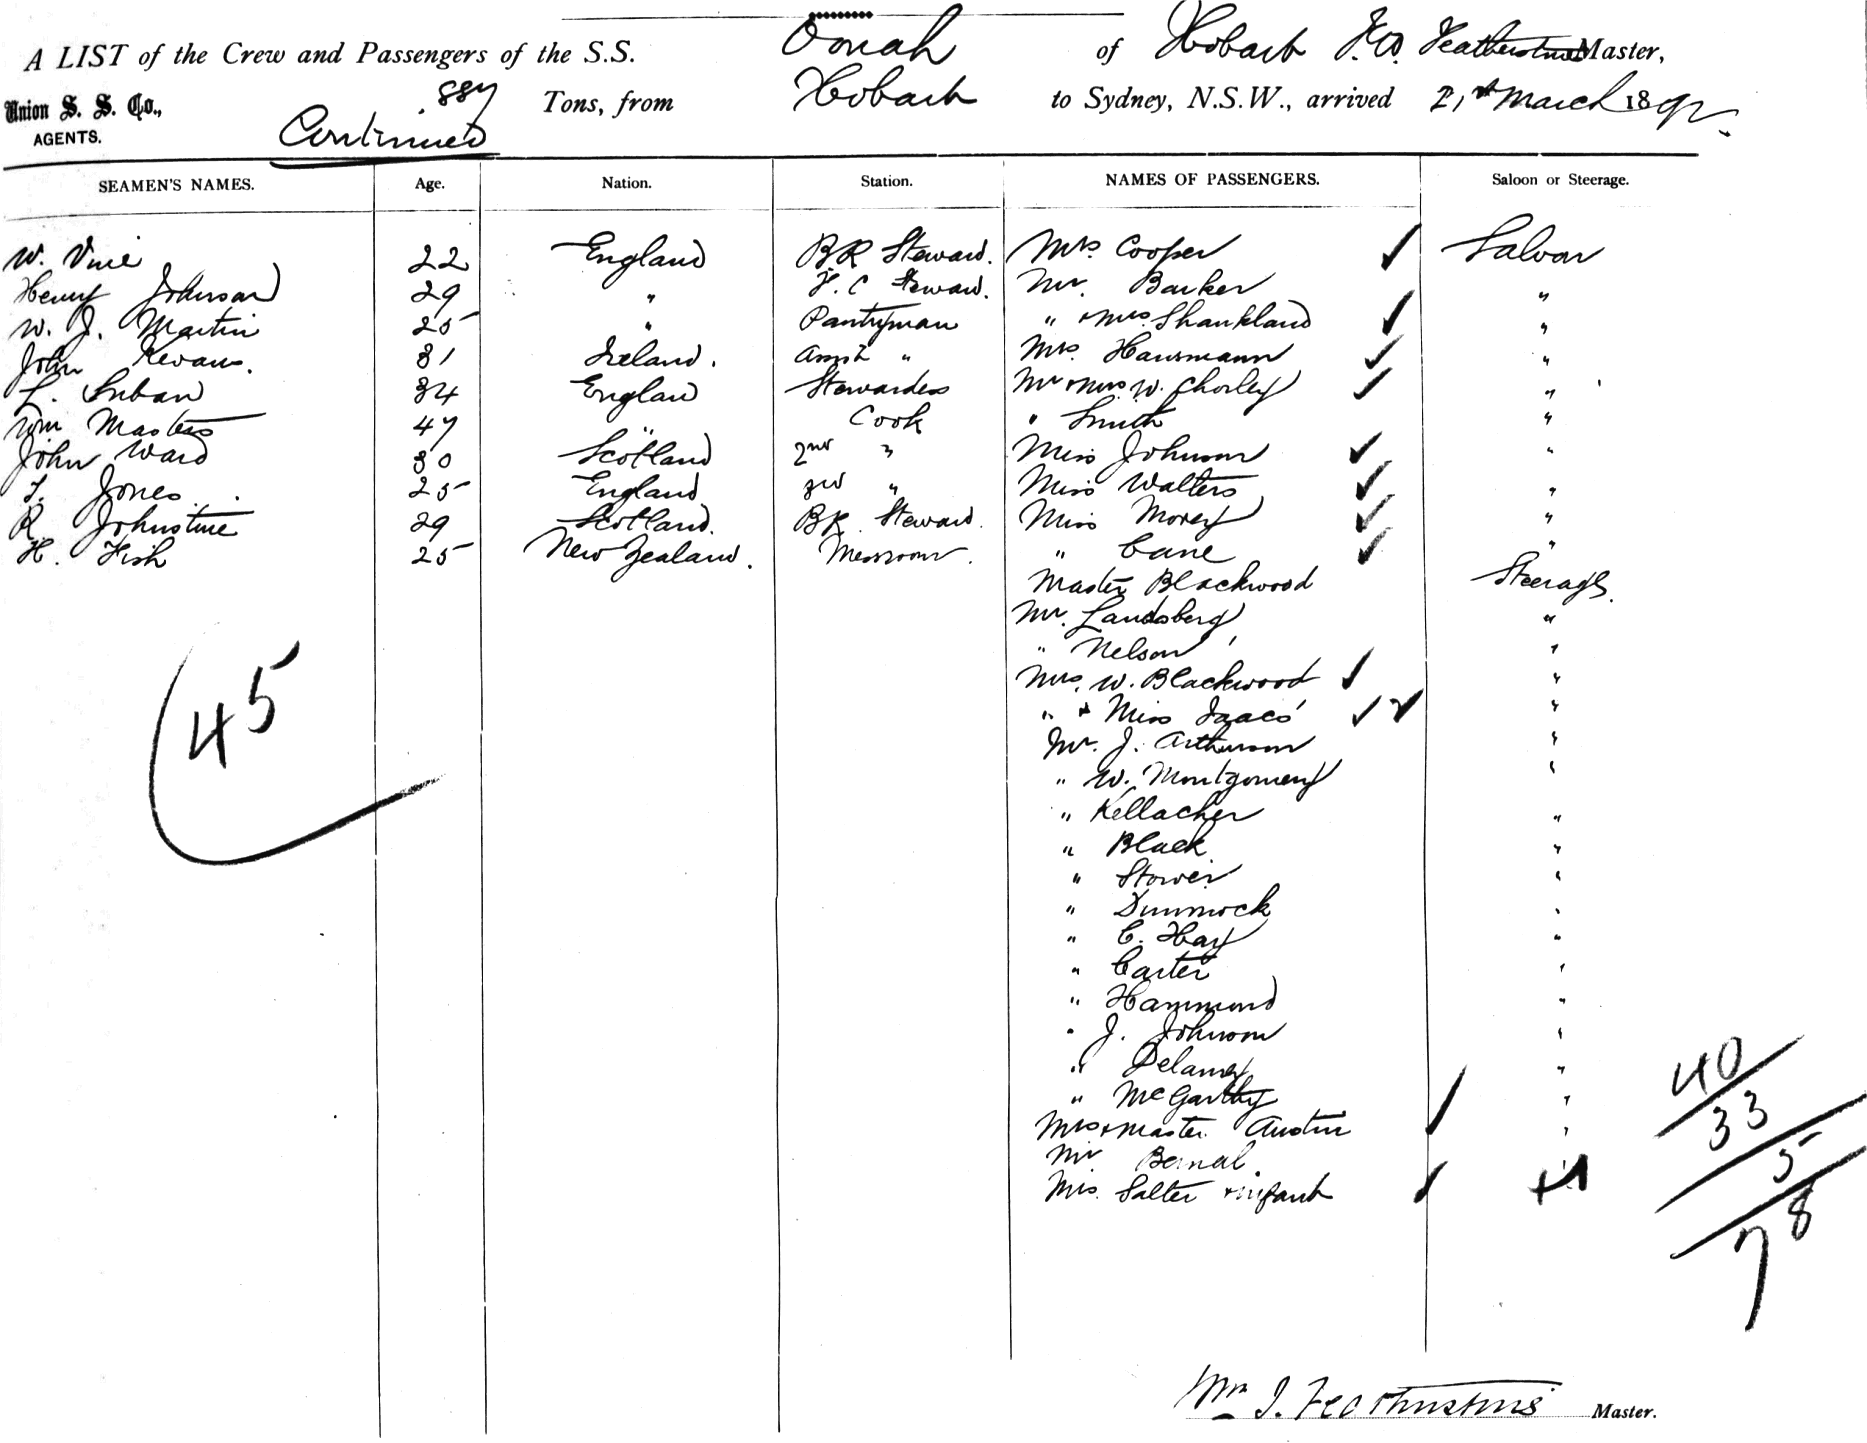 A LIST of the Crew and Passengers of the S.S. Oonah of Hobart Master,
Union S. S. Co., 887 Tons, from Hobart to Sydney, N.S.W., arrived 21st March 1892
AGENTS. Continued
SEAMEN'S NAMES. Age. Nation. Station. NAMES OF PASSENGERS. Saloon or Steerage.
W. Vine 22 England BR Steward. Mrs Cooper ✓ Saloon
Henry Johnson 29 " F. C Steward. Mr. Barker "
W. J. Martin 25 " Pantryman " + Mrs. Shankland ✓ "
John 31 Ireland. Asst " Mrs. Hausmann ✓ "
L. 34 England Stewardess Mr + Mrs W. Chorley ✓ "
Wm Masters 47 " Cook " Smith "
John Ward 30 Scotland 2nd " Miss Johnson ✓ "
T. Jones 25 England 3rd " Miss Walters ✓ "
R Johnstine 29 Scotland. BR Steward. Miss Morey ✓ "
H. Fish 25 New Zealand. Messroom. " Cane ✓ "
Master Blackwood Steerage.
Mr. Landsberg "
" Nelson "
Mrs. W. Blackwood ✓ "
" + Miss Isaacs ✓ ✓ "
Mr. J. Arthurson "
" W. Montgomery "
" Kellacher "
" Black "
" Stower "
" Dummock "
" C. Hay "
" Carter "
" Hammond "
" J. Johnson "
" Delaney "
" McGarthy "
Mrs + Master Austin ✓ "
Mr Bernal
Mrs. Salter + infant ✓ +1
45
40
33
5
78
Wm J. Featherstone Master.